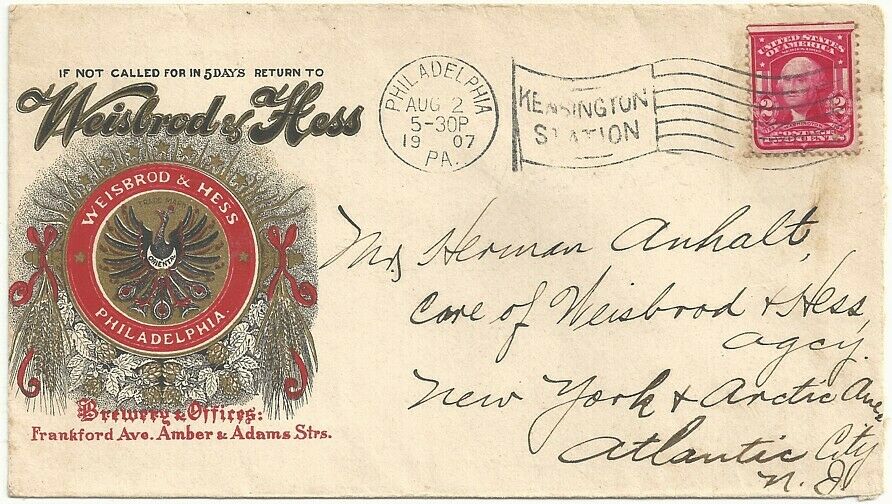 IF NOT CALLED FOR IN 5 DAYS RETURN TO
Weisbrod & Hess
WEISBROD & HESS
TRADE MARK
ORIENTAL
PHILADELPHIA.
Brewery & Offices:
Frankford Ave. Amber & Adams Strs.
PHILADELPHIA
AUG 2
5-30P
19 07
PA.
KENSINGTON
STATION
UNITED STATES
OF AMERICA
2 2
POSTAGE
TWO CENTS
Herman Anhalt,
Care of Weisbrod & Hess,
agcy.
New York & Arctic Ave
Atlantic City
N. J.